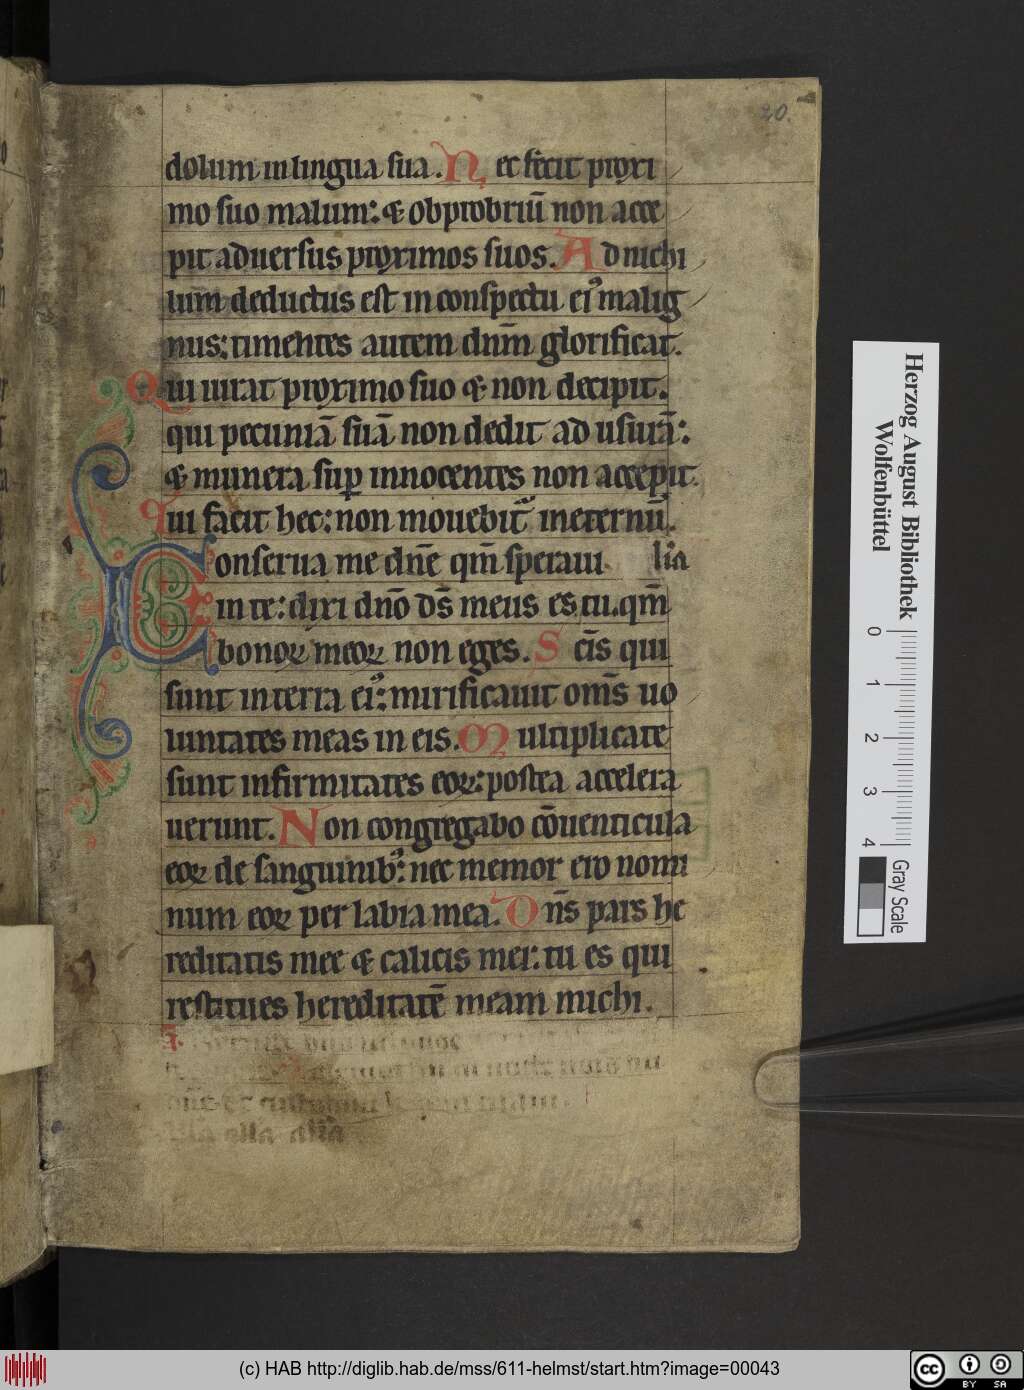 20.
dolum in lingua sua. Nec fecit proxi
mo suo malum: & obprobriū non acce
pit aduersus proximos suos. Ad nichi
lum deductus est in conspectu eiꝰ malig
nus: timentes autem dn̄m glorificat.
Qui iurat proximo suo & non decipit.
qui pecuniā suā non dedit ad usurā:
& munera suꝑ innocentes non accepit.
Qui facit hec: non mouebit᷑ in eternū.
Conserua me dn̄e qm̄ speraui
lia
in te: dixi dn̄o ds̄ meus es tu. qm̄
bonoꝝ meoꝝ non eges. Scīs qui
sunt in terra eiꝰ: mirificauit om̄s uo
luntates meas in eis. Multiplicate
sunt infirmitates eoꝝ: postea accelera
uerunt. Non congregabo cōuenticula
eoꝝ de sanguinibꝰ: nec memor ero nomi
num eoꝝ per labia mea. Dn̄s pars he
reditatis mee & calicis mei: tu es qui
restitues hereditatē meam michi.
Herzog August Bibliothek
Wolfenbüttel
0 1 2 3 4
Gray Scale
(c) HAB http://diglib.hab.de/mss/611-helmst/start.htm?image=00043
cc BY SA